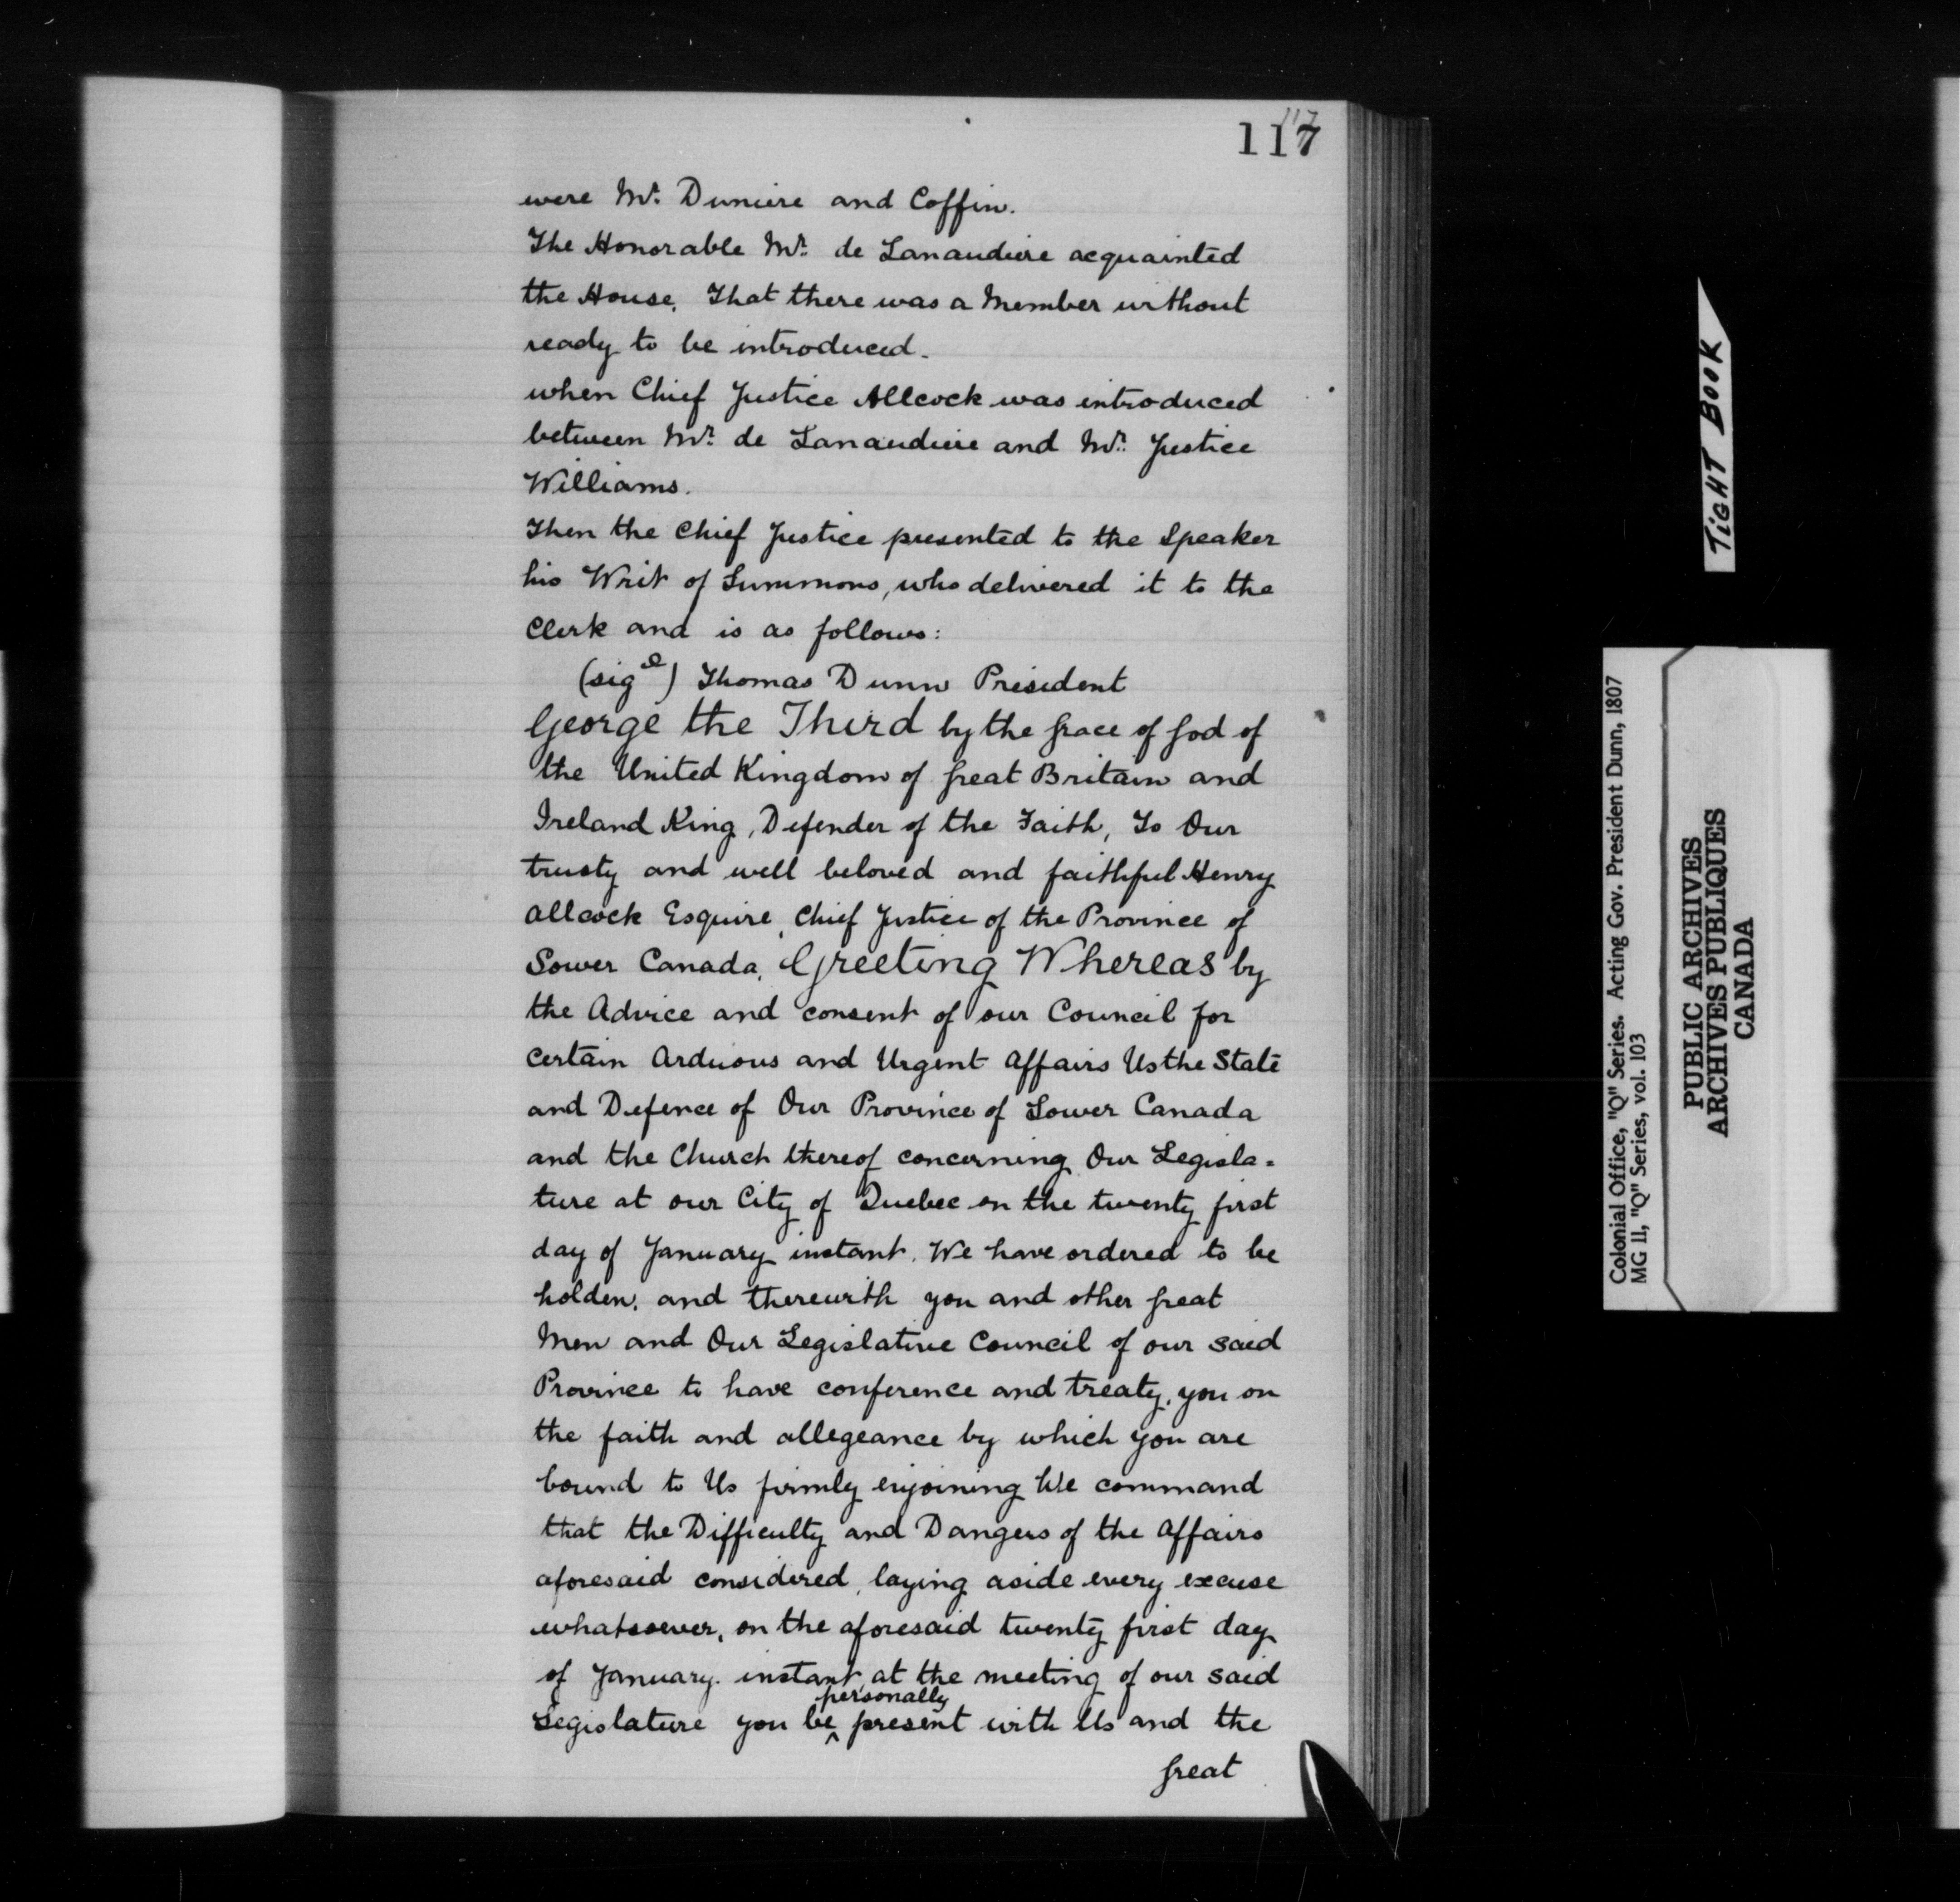 117
117
were Mr. Duniere and Coffin.
The Honorable Mr. de Lanaudiere acquainted
the House, That there was a Member without
ready to be introduced.
when Chief Justice Allcock was introduced
between Mr. de Lanaudiere and Mr. Justice
Williams.
Then the Chief Justice presented to the Speaker
his Writ of Summons, who delivered it to the
Clerk and is as follows:
(sigd) Thomas Dunn President
George the Third by the Grace of God of
the United Kingdom of Great Britain and
Ireland King, Defender of the Faith, To Our
trusty and well beloved and faithful Henry
Allcock Esquire, Chief Justice of the Province of
Lower Canada, Greeting Whereas by
the Advice and consent of our Council for
certain Arduous and Urgent Affairs Us the State
and Defence of Our Province of Lower Canada
and the Church thereof concerning Our Legisla=
ture at our City of Quebec on the twenty first
day of January instant. We have ordered to be
holden, and therewith you and other Great
Men and Our Legislative Council of our said
Province to have conference and treaty, you on
the faith and allegeance by which you are
bound to Us firmly enjoining We command
that the Difficulty and Dangers of the Affairs
aforesaid considered, laying aside every excuse
whatsoever, on the aforesaid twenty first day
of January. instant, at the meeting of our said
Legislature you be ^ personally present with Us and the
Great
TIGHT BOOK
Colonial Office, "Q" Series. Acting Gov. President Dunn, 1807
MG 11, "Q" Series, vol. 103
PUBLIC ARCHIVES
ARCHIVES PUBLIQUES
CANADA